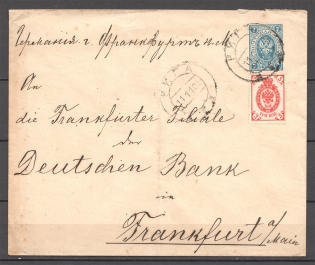 Германия г. Франкфуртъ н.М.
An
die Frankfurter Filiale
der
Deutschen Bank
in
Frankfurt a/Main